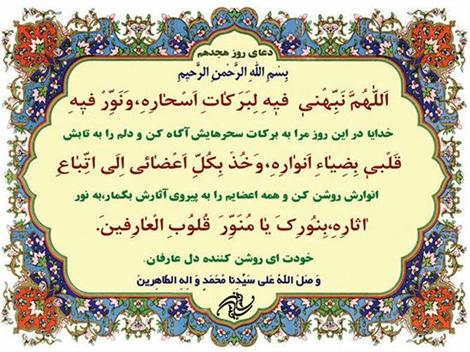 دعای روز هجدهم
بِسْمِ اللهِ الرَّحْمنِ الرَّحیمِ
اَللّهُمَّ نَبِّهْنی فیهِ لِبَرَکاتِ اَسْحارِهِ،وَنَوِّرْ فیهِ
خدایا در این روز مرا به برکات سحرهایش آگاه کن و دلم را به تابش
قَلْبی بِضِیاءِ اَنْوارِهِ،وَخُذْ بِکُلِّ اَعْضائی اِلَی اتِّباعِ
انوارش روشن کن و همه اعضایم را به پیروی آثارش بگمار،به نور
اثارِهِ،بِنُورِکَ یا مُنَوِّرَ قُلُوبِ الْعارِفینَ.
خودت ای روشن کننده دل عارفان.
وَ صَلَ اللهُ عَلی سَیِّدِنا مُحَمَّدٍ وَ الِهِ الطّاهِرینَ